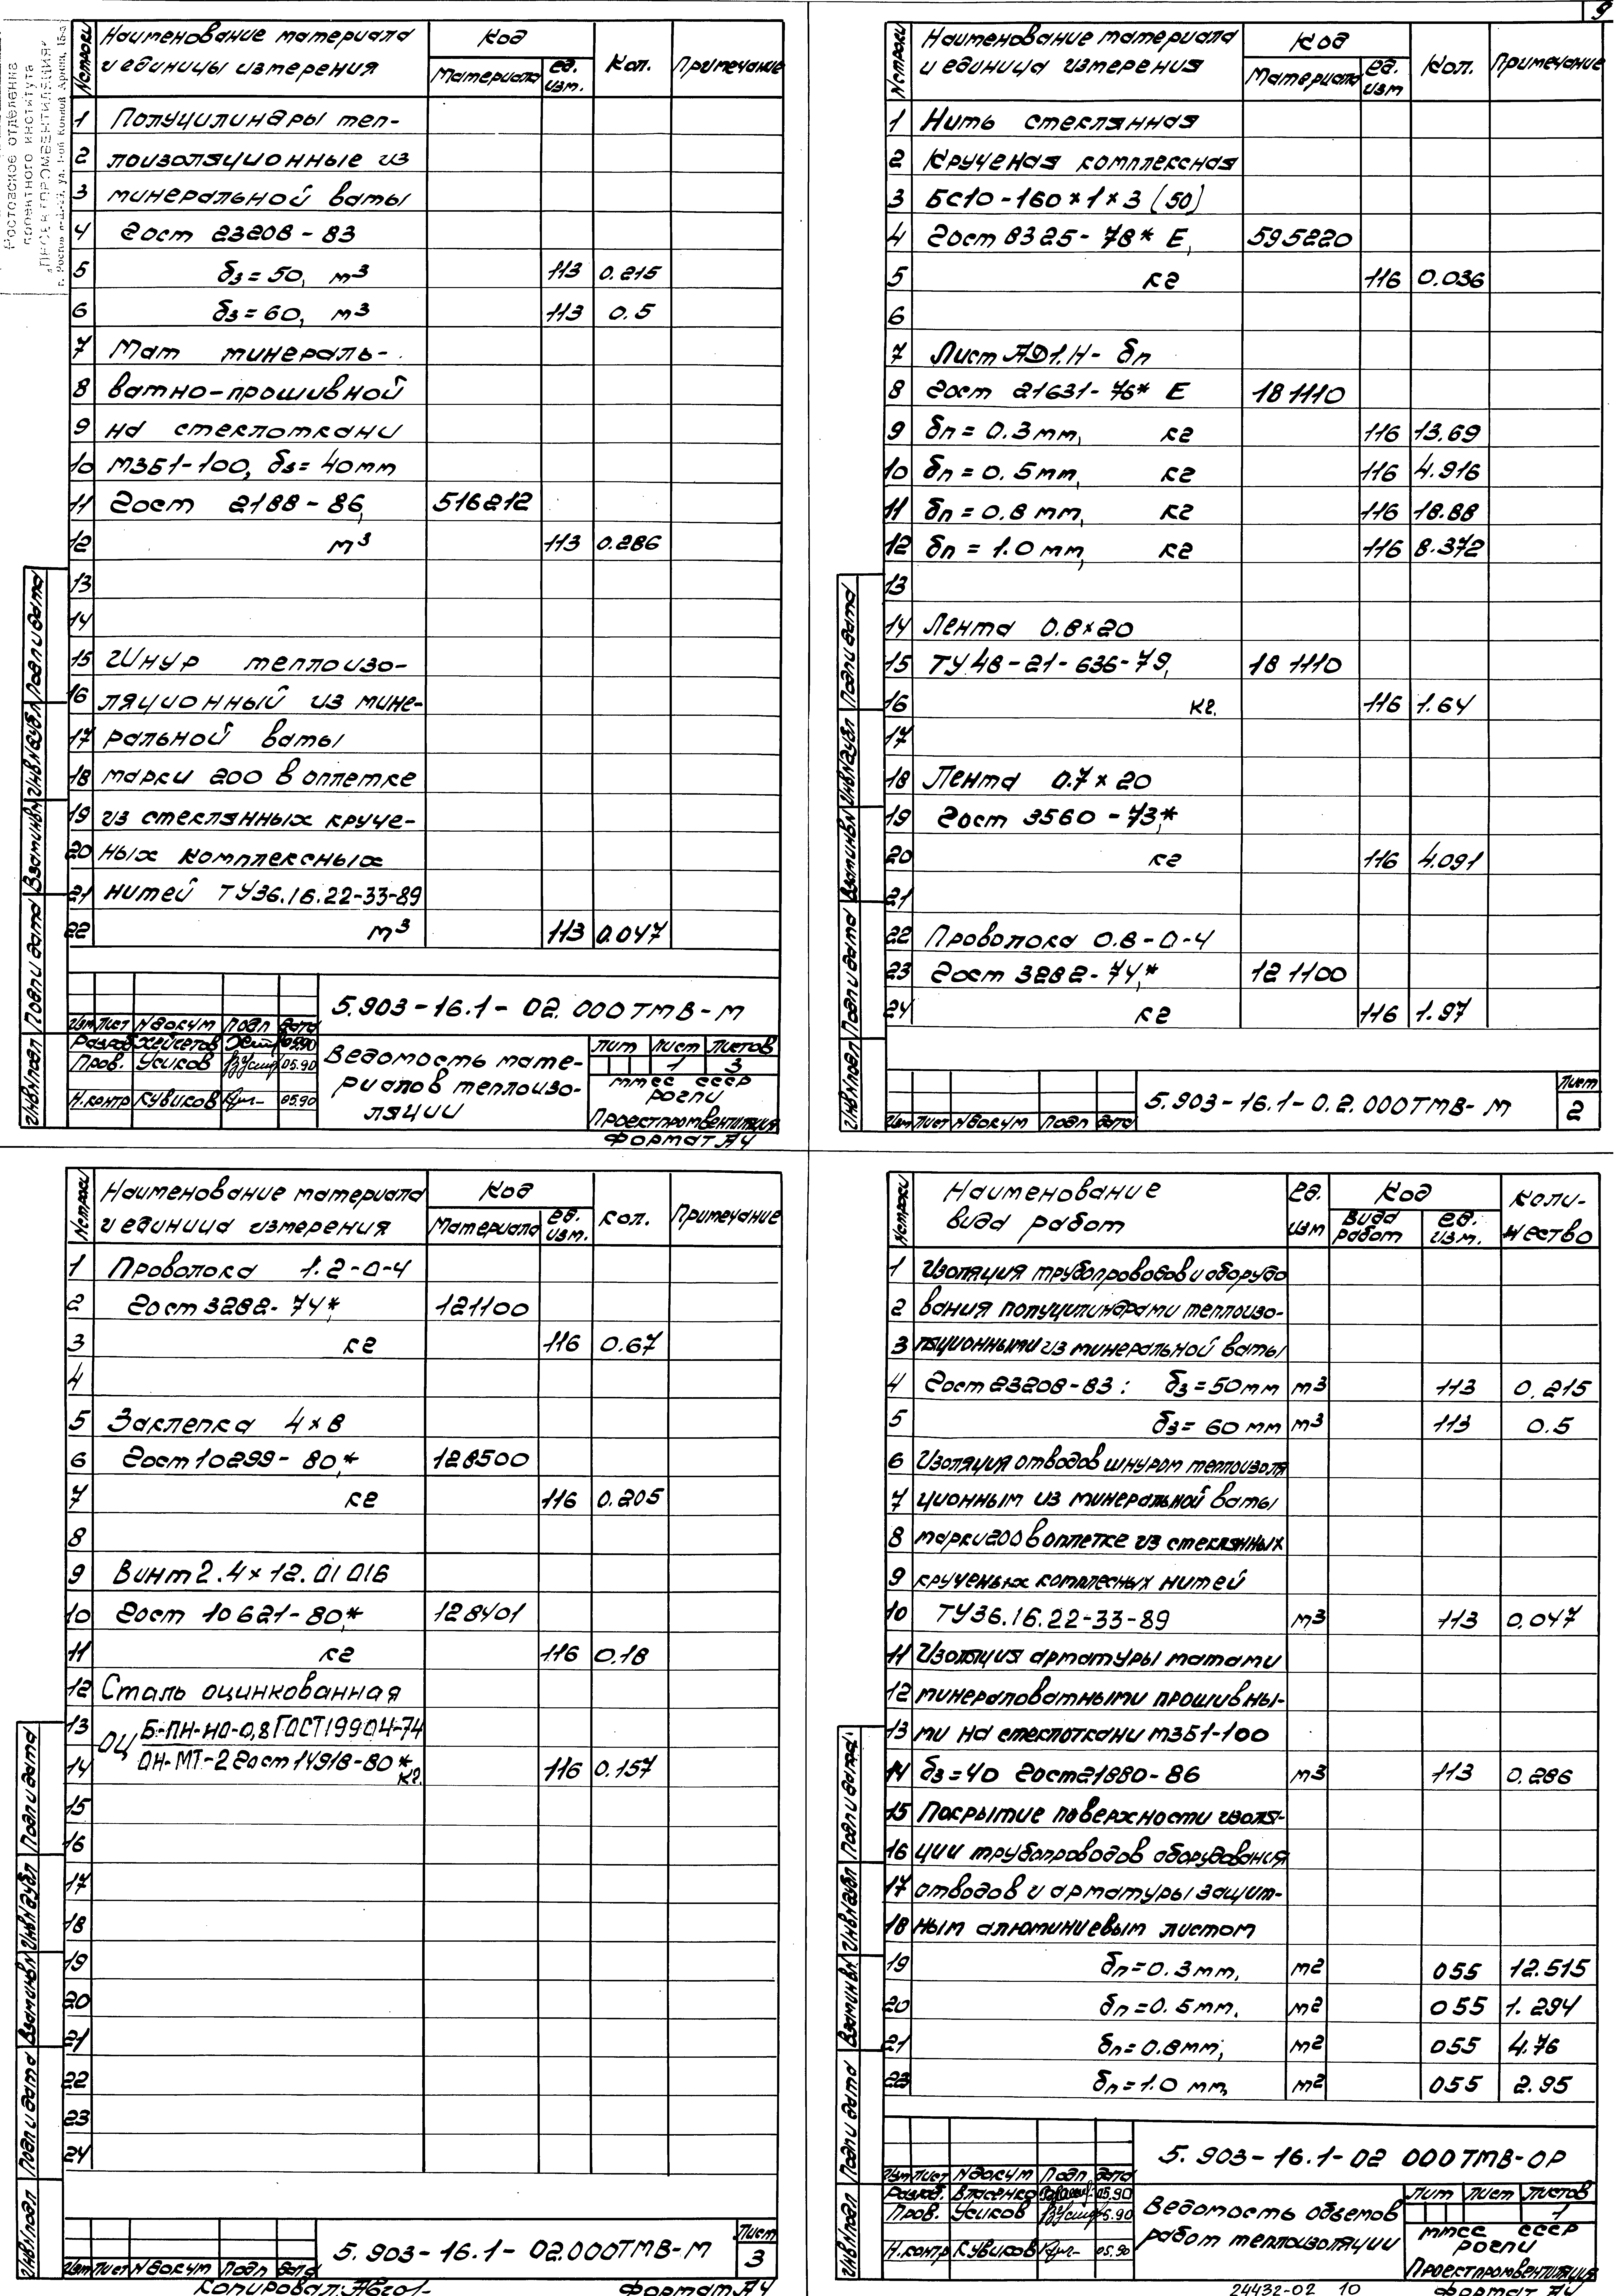 9
Ростовское отделение
проектного института
"ПРОЕКТПРОМВЕНТИЛЯЦИЯ"
№ строки Наименование материала и единицы измерения Код Материала ед. изм. Кол. Примечание
1 Полуцилиндры теп-
2 лоизоляционные из
3 минеральной ваты
4 Гост 23208-83
5 δз = 50, м3 113 0.215
6 δз = 60, м3 113 0.5
7 Мат минераль-
8 ватно-прошивной
9 на стеклоткани
10 МЗБ1-100, δз = 40мм
11 Гост 2188-86, 516212
12 м3 113 0.286
13
14
15 Шнур теплоизо-
16 ляционный из мине-
17 ральной ваты
18 марки 200 в оплетке
19 из стеклянных круче-
20 ных комплексных
21 нитей ТУ36.16.22-33-89
22 м3 113 0.047
Изм Лист № докум Подп Дата
5.903-16.1-02.000ТМВ-М
Разраб. Хейсетов 05.90
Пров. Усиков 05.90
Н.контр Кувиков 05.90
Ведомость мате-
риалов теплоизо-
ляции
Лит Лист Листов
1 3
ММСС СССР
РОГПИ
Проектпромвентиляция
Формат А4
Инв№подл Подп и дата Взам инв№ Инв№дубл Подп и дата
№ строки Наименование материала и единица измерения Код Материала ед. изм Кол. Примечание
1 Нить стеклянная
2 Крученая комплексная
3 БС10-160×1×3 (50)
4 Гост 8325-78* Е, 595220
5 кг 116 0.036
6
7 Лист АД1.Н- δп
8 Гост 21631-76* Е 181110
9 δп = 0.3мм, кг 116 13.69
10 δп = 0.5мм, кг 116 4.916
11 δп = 0.8мм, кг 116 18.88
12 δп = 1.0мм, кг 116 8.372
13
14 Лента 0.8×20
15 ТУ48-21-636-79, 181110
16 кг. 116 1.64
17
18 Лента 0.7×20
19 Гост 3560-73,*
20 кг 116 4.091
21
22 Проволока 0.8-0-4
23 Гост 3282-74,* 121100
24 кг 116 1.97
Изм Лист № докум Подп Дата
5.903-16.1-0.2.000ТМВ-М
Лист
2
Инв№подл Подп и дата Взам инв№ Инв№дубл Подп и дата
№ строки Наименование материала и единица измерения Код Материала ед. изм. Кол. Примечание
1 Проволока 1.2-0-4
2 Гост 3282-74* 121100
3 кг 116 0.67
4
5 Заклепка 4×8
6 Гост 10299-80,* 128500
7 кг 116 0.205
8
9 Винт 2.4×12.01 016
10 Гост 10621-80,* 128401
11 кг 116 0.18
12 Сталь оцинкованная
13 ОЦ Б-ПН-НО-0,8 ГОСТ19904-74
14 ОН-МТ-2 Гост 14918-80* кг. 116 0.157
15
16
17
18
19
20
21
22
23
24
Изм Лист № докум Подп Дата
5.903-16.1-02.000ТМВ-М
Лист
3
Копировал:
Формат А4
Инв№подл Подп и дата Взам инв№ Инв№дубл Подп и дата
№ строки Наименование вида работ ед. изм Код вида работ ед. изм. Коли-чество
1 Изоляция трубопроводов и оборудо
2 вания полуцилиндрами теплоизо-
3 ляционными из минеральной ваты
4 Гост 23208-83: δз = 50мм м3 113 0.215
5 δз = 60мм м3 113 0.5
6 Изоляция отводов шнуром теплоизоля
7 ционным из минеральной ваты
8 марки 200 в оплетке из стеклянных
9 крученых комплесных нитей
10 ТУ36.16.22-33-89 м3 113 0,047
11 Изоляция арматуры матами
12 минераловатными прошивны-
13 ми на стеклоткани МЗБ1-100
14 δз = 40 Гост 21880-86 м3 113 0.286
15 Покрытие поверхности изоля-
16 ции трубопроводов оборудования
17 отводов и арматуры защит-
18 ным алюминиевым листом
19 δп = 0.3мм, м2 055 12.515
20 δп = 0.5мм, м2 055 1.294
21 δп = 0.8мм, м2 055 4.76
22 δп = 1.0 мм, м2 055 2.95
Изм Лист № докум Подп Дата
5.903-16.1-02 000ТМВ-ОР
Разраб. Власенко 05.90
Пров. Усиков 05.90
Н.контр Кувиков 05.90
Ведомость объемов
работ теплоизоляции
Лит Лист Листов
1
ММСС СССР
РОГПИ
Проектпромвентиляция
24432-02 10
Формат А4
Инв№подл Подп и дата Взам инв№ Инв№дубл Подп и дата